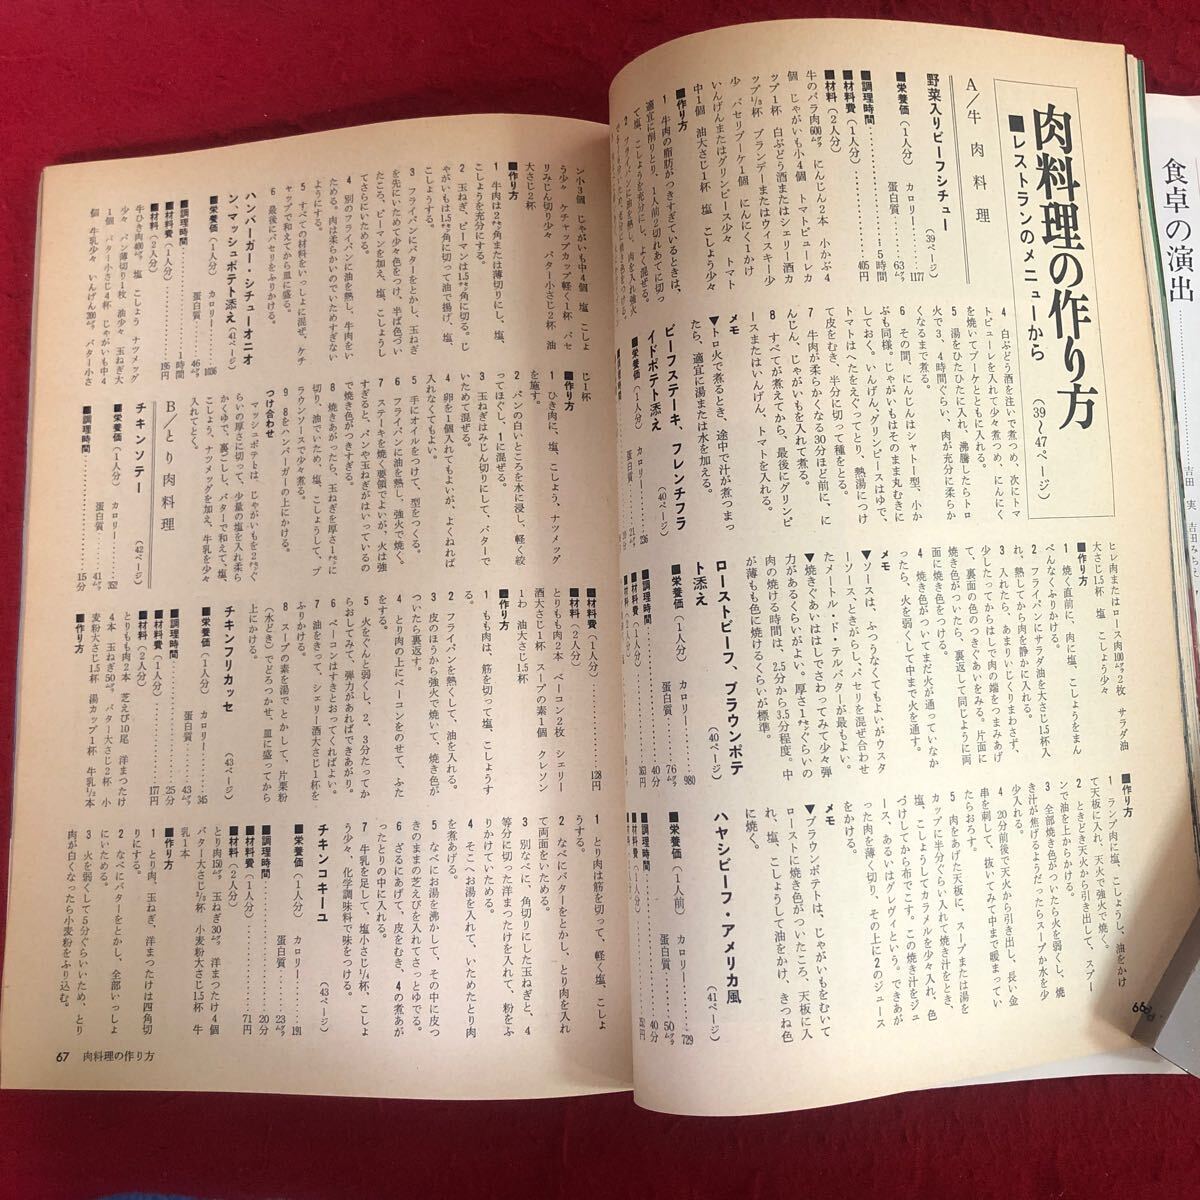 食卓の演出
吉田 実
肉料理の作り方
■レストランのメニューから
(39〜47ページ)
A/牛肉料理
野菜入りビーフシチュー
(39ページ)
■栄養価(1人分) カロリー……1177
蛋白質……63㌘
■調理時間……5時間
■材料費(1人分)……405円
■材料(2人分)
牛のバラ肉600㌘ にんじん2本 小かぶ4
個 じゃがいも小4個 トマトピューレカ
ップ1杯 白ぶどう酒またはシェリー酒カ
ップ1/3杯 ブランデーまたはウイスキー少
少 パセリブーケ1個 にんにく1かけ
いんげんまたはグリンピース少々 トマト
中1個 油大さじ1杯 塩 こしょう少々
■作り方
1 牛肉の脂肪がつきすぎているときは、
適宜に削りとり、1人前2切れあてに切っ
て塩、こしょうを充分にし、
4 白ぶどう酒を注いで煮つめ、次にトマ
トピューレを入れて少々煮つめ、にんにく
を焼いてブーケとともに入れる。
5 湯をひたひたに入れ、沸騰したらトロ
火で3、4時間ぐらい、肉が充分に柔らか
くなるまで煮る。
6 その間、にんじんはシャトー型、小か
ぶも同様。じゃがいもはそのまま丸むきに
しておく。いんげん、グリンピースはゆで、
トマトはへたをえぐってとり、熱湯につけ
て皮をむき、半分に切って種をとる。
7 牛肉が柔らかくなる30分ほど前に、に
んじん、じゃがいもを入れて煮る。
8 すべてが煮えてから、最後にグリンピ
ースまたはいんげん、トマトを入れる。
メモ
▼トロ火で煮るとき、途中で汁が煮つまっ
たら、適宜に湯または水を加える。
ビーフステーキ、フレンチフラ
イドポテト添え
(40ページ)
■栄養価(1人分) カロリー
蛋白質……21㌘
ヒレ肉またはロース肉100㌘2枚 サラダ油
大さじ1.5杯 塩 こしょう少々
■作り方
1 焼く直前に、肉に塩、こしょうをまん
べんなくふりかける。
2 フライパンにサラダ油を大さじ1.5杯入
れ、熱してから肉を静かに入れる。
3 入れたら、あまりいじくりまわさず、
少ししたってからはしで肉の端をつまみあげ
て、裏面の色のつきぐあいをみる。片面に
焼き色がついたら、裏返して同じように両
面に焼き色をつける。
4 焼き色がついてまだ火が通っていなか
ったら、火を弱くして中まで火を通す。
メモ
▼ソースは、ふつうなくてもよいがウスタ
ーソース、ときがらし、パセリを混ぜ合わせ
たメートル・ド・テルバターが最もよい。
▼焼きぐあいははしでさわってみて少々弾
力があるくらいがよい。厚さ1㌢ぐらいの
肉の焼ける時間は、2.5分から3.5分程度。中
が薄もも色に焼けるくらいが標準。
ローストビーフ、ブラウンポテ
ト添え
(40ページ)
■栄養価(1人分) カロリー……980
蛋白質……76㌘
■調理時間……40分
■材料費(1人分)……363円
■材料(2人分)
■作り方
1 ランプ肉に塩、こしょうし、油をかけ
て天板に入れ、天火で強火で焼く。
2 ときどき天火から引き出して、スプー
ンで油を上からかける。
3 全部焼き色がついたら火を弱くし、焼
き汁が焦げるようだったらスープか水を少
少入れる。
4 20分前後で天火から引き出し、長い金
串を刺して、抜いてみて中まで暖まってい
たらおろす。
5 肉をあげた天板に、スープまたは湯を
カップに半分ぐらい入れて焼き汁をとき、
塩、こしょうしてカラメルを少々入れ、色
づけしてから布でこす。この焼き汁をジュ
ース、あるいはグレヴィという。できあが
った肉を薄く切り、その上に2のジュース
をかける。
メモ
▼ブラウンポテトは、じゃがいもをむいて
ローストに焼き色がついたころ、天板に入
れ、塩、こしょうして油をかけ、きつね色
に焼く。
ハヤシビーフ・アメリカ風
(41ページ)
■栄養価(1人前) カロリー……729
蛋白質……50㌘
■調理時間……40分
■材料費(1人分)……252円
66
ン小3個 じゃがいも中4個 塩 こしょ
う少々 ケチャップカップ軽く1杯 パセ
リみじん切り少々 バター小さじ2杯 油
大さじ2杯
■作り方
1 牛肉は2㌢角または薄切りにし、塩、
こしょうを充分にする。
2 玉ねぎ、ピーマンは1.5㌢角に切る。じ
ゃがいもは1.5㌢角に切って油で揚げ、塩、
こしょうする。
3 フライパンにバターをとかし、玉ねぎ
を先にいためて少々色をつけ、半ば色づい
たころ、ピーマンを加え、塩、こしょうし
てさらにいためる。
4 別のフライパンに油を熱し、牛肉をい
ためる。肉は薄いのでいためすぎない
ようにする。
5 すべての材料をいっしょに混ぜ、ケチ
ャップで和えてから皿に盛る。
6 最後にパセリをふりかける。
ハンバーガー・シチューオニオ
ン、マッシュポテト添え(41ページ)
■栄養価(1人分) カロリー……1036
蛋白質……46㌘
■調理時間……1時間
■材料費(1人分)……195円
■材料(2人分)
牛ひき肉400㌘ 塩 こしょう ナツメッグ
少々 パン薄切り1枚 油少々 玉ねぎ大
1個 バター小さじ4杯 じゃがいも中4
個 牛乳少々 いんげん200㌘ バター小さ
じ1杯
■作り方
1 ひき肉に、塩、こしょう、ナツメッグ
を施す。
2 パンの白いところを水に浸し、軽く絞
ってほぐし、1に混ぜる。
3 玉ねぎはみじん切りにして、バターで
いためて混ぜる。
4 卵を1個入れてもよいが、よくねれば
入れなくてもよい。
5 手にオイルをつけて、型をつくる。
6 フライパンに油を熱し、強火で焼く。
7 ステーキを焼く要領でよいが、火は強
すぎると、パンや玉ねぎがはいっているの
で焼き色がつきすぎる。
8 焼きあがったら、玉ねぎを厚さ1㌢に
切り、油でいためた、塩、こしょうして、ブ
ラウンソースで少々煮る。
9 8をハンバーガーの上にかける。
つけ合わせ
マッシュポテトは、じゃがいもを2㌢ぐ
らいの厚さに切って、少量の塩を入れ柔ら
かくゆで、裏ごしし、バターで和えて、塩、
こしょう、ナツメッグを加え、牛乳を少々
入れてとく。
B/とり肉料理
チキンソテー
(42ページ)
■栄養価(1人分) カロリー……352
蛋白質……41㌘
■調理時間……15分
■材料費(1人分)……128円
■材料(2人分)
とりもも肉2本 ベーコン2枚 シェリー
酒大さじ1杯 スープの素1個 クレソン
1わ 油大さじ1.5杯
■作り方
1 もも肉は、筋を切って塩、こしょうす
る。
2 フライパンを熱くして、油を入れる。
3 皮のほうから強火で焼いて、焼き色が
ついたら裏返す。
4 とり肉の上にベーコンをのせて、ふた
をする。
5 火をぐんと弱くし、2、3分たってか
らおしてみて、弾力があればできあがり。
6 ベーコンはすきとおってくればよい。
7 油をきって、シェリー酒大さじ1杯を
ふりかける。
8 スープの素を湯でとかして、片栗粉
(水どき)でどろつかせ、皿に盛ってから
上にかける。
チキンフリカッセ
(43ページ)
■栄養価(1人分) カロリー……345
蛋白質……43㌘
■調理時間……25分
■材料費(1人分)……177円
■材料(2人分)
とりもも肉2本 芝えび10尾 洋まつたけ
4本 玉ねぎ50㌘ バター大さじ2杯 小
麦粉大さじ1.5杯 湯カップ1杯 牛乳1/2本
■作り方
1 とり肉は筋を切って、軽く塩、こしょ
うする。
2 なべにバターをとかし、とり肉を入れ
て両面をいためる。
3 別なべに、角切りにした玉ねぎと、4
等分に切った洋まつたけを入れて、粉をふ
りかけていためる。
4 そこへお湯を入れて、いためたとり肉
を煮あげる。
5 なべにお湯を沸かして、その中に皮つ
きのままの芝えびを入れてさっとゆでる。
6 ざるにあげて、皮をむき、4の煮あが
ったとりの中に入れる。
7 牛乳を足して、塩小さじ1/4杯、こしょ
う少々、化学調味料で味をつける。
チキンコキーユ
(43ページ)
■栄養価(1人分) カロリー……191
蛋白質……23㌘
■調理時間……20分
■材料費(1人分)……71円
■材料(2人分)
とり肉150㌘ 玉ねぎ30㌘ 洋まつたけ4個
バター大さじ2/3杯 小麦粉大さじ1.5杯 牛
乳1本
■作り方
1 とり肉、玉ねぎ、洋まつたけは四角切
りにする。
2 なべにバターをとかし、全部いっしょ
にいためる。
3 火を弱くして5分ぐらいいため、とり
肉が白くなったら小麦粉をふり込む。
67 肉料理の作り方